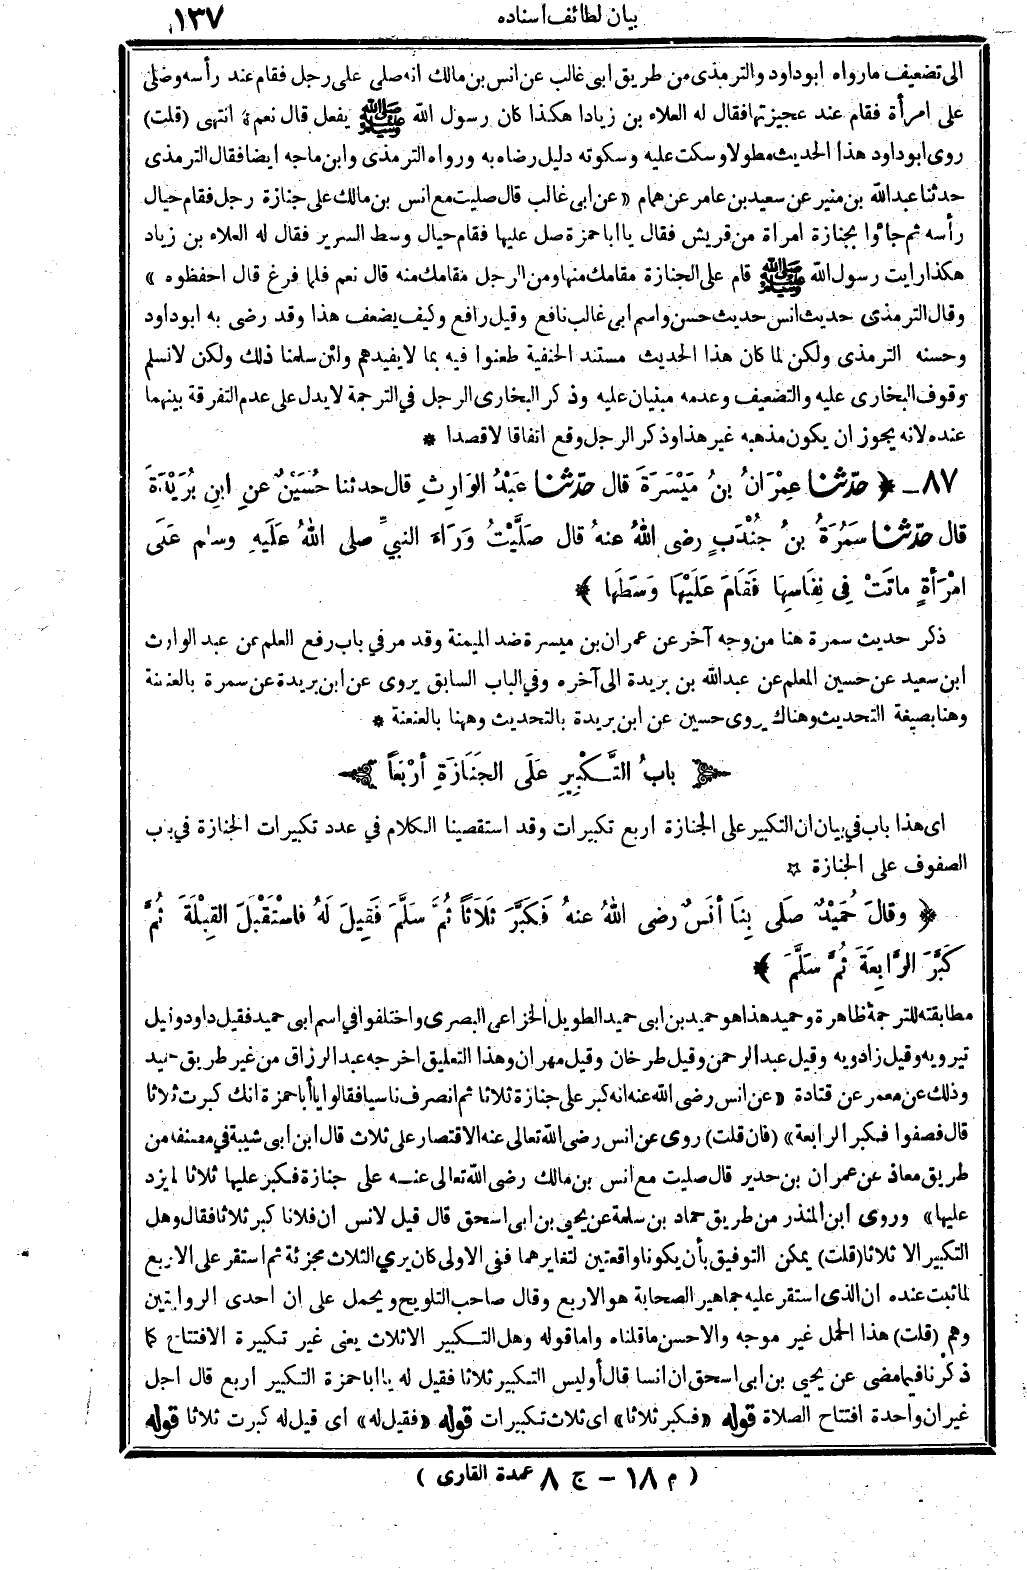 بيان لطائف أسناده ١٣٧
الى تضعيف مارواه ابوداود والترمذى من طريق ابى غالب عن انس بن مالك انه صلى على رجل فقام عند رأسه وصلى
على امرأة فقام عند عجيزتها فقال له العلاء بن زيادا هكذا كان رسول الله ﷺ يفعل قال نعم ؛ انتهى (قلت)
روى ابوداود هذا الحديث مطولا وسكت عليه وسكوته دليل رضاه به ورواه الترمذى وابن ماجه ايضا فقال الترمذى
حدثنا عبدالله بن منير عن سعيد بن عامر عن همام « عن ابى غالب قال صليت مع انس بن مالك على جنازة رجل فقام حيال
رأسه ثم جاؤا بجنازة امرأة من قريش فقال يا ابا حمزة صل عليها فقام حيال وسط السرير فقال له العلاء بن زياد
هكذا رايت رسول الله ﷺ قام على الجنازة مقامك منها ومن الرجل مقامك منه قال نعم فلما فرغ قال احفظوه »
وقال الترمذى حديث انس حديث حسن واسم ابى غالب نافع وقيل رافع وكيف يضعف هذا وقد رضى به ابوداود
وحسنه الترمذى ولكن لما كان هذا الحديث مستند الحنفية طعنوا فيه بما لايفيدهم ولئن سلمنا ذلك ولكن لانسلم
وقوف البخارى عليه والتضعيف وعدمه مبنيان عليه وذكر البخارى الرجل فى الترجمة لايدل على عدم التفرقة بينهما
عنده لانه يجوز ان يكون مذهبه غير هذا وذكر الرجل وقع اتفاقا لا قصدا *
٨٧ - ﴿ حدّثنا عِمْرَانُ بنُ مَيْسَرَةَ قال حدّثنا عَبْدُ الوَارِثِ قال حدثنا حُسَيْنٌ عنِ ابنِ بُرَيْدَةَ
قال حدّثنا سَمُرَةُ بنُ جُنْدَبٍ رضى اللهُ عنهُ قال صَلَّيْتُ وَرَاءَ النبيِّ صلى اللهُ عَلَيهِ وسلم عَلَى
امْرَأةٍ ماتَتْ فِى نِفَاسِهَا فَقَامَ عَلَيْهَا وَسَطَهَا ﴾
ذكر حديث سمرة هنا من وجه آخر عن عمران بن ميسرة ضد الميمنة وقد مر في باب رفع العلم عن عبد الوارث
ابن سعيد عن حسين المعلم عن عبدالله بن بريدة الى آخره وفي الباب السابق يروى عن ابن بريدة عن سمرة بالعنعنة
وهنا بصيغة التحديث وهناك يروى حسين عن ابن بريدة بالتحديث وههنا بالعنعنة *
بابُ التَّكْبِيرِ عَلَى الجَنَازَةِ أرْبَعاً
اى هذا باب في بيان ان التكبير على الجنازة اربع تكبيرات وقد استقصينا الكلام في عدد تكبيرات الجنازة في باب
الصفوف على الجنازة ☆
﴿ وقالَ حُمَيْدٌ صَلَى بِنَا أنَسٌ رضى اللهُ عنهُ فَكَبَّرَ ثَلَاثاً ثُمَّ سَلَّمَ فَقِيلَ لَهُ فاسْتَقْبَلَ القِبْلَةَ ثُمَّ
كَبَّرَ الرَّابِعَةَ ثُمَّ سَلَّمَ ﴾
مطابقته للترجمة ظاهرة وحميد هذا هو حميد بن ابى حميد الطويل الخزاعى البصرى واختلفوا في اسم ابى حميد فقيل داود وقيل
تيرويه وقيل زادويه وقيل عبد الرحمن وقيل طرخان وقيل مهران وهذا التعليق اخرجه عبد الرزاق من غير طريق حميد
وذلك عن معمر عن قتادة « عن انس رضى الله عنه انه كبر على جنازة ثلاثا ثم انصرف ناسيا فقالوا يا أبا حمزة انك كبرت ثلاثا
قال فصفوا فكبر الرابعة » (فان قلت) روى عن انس رضى الله تعالى عنه الاقتصار على ثلاث قال ابن ابى شيبة في مصنفه من
طريق معاذ عن عمران بن حدير قال صليت مع انس بن مالك رضى الله تعالى عنه على جنازة فكبر عليها ثلاثا لم يزد
عليها » وروى ابن المنذر من طريق حماد بن سلمة عن يحيى بن ابى اسحق قال قيل لانس ان فلانا كبر ثلاثا فقال وهل
التكبير الا ثلاثا (قلت) يمكن التوفيق بأن يكونا واقعتين لتغايرهما ففى الاولى كان يري الثلاث مجزئة ثم استقر على الاربع
لما ثبت عنده ان الذى استقر عليه جماهير الصحابة هو الاربع وقال صاحب التلويح ويحمل على ان احدى الروايتين
وهم (قلت) هذا الحمل غير موجه والاحسن ماقلناه واما قوله وهل التكبير الاثلاث يعنى غير تكبيرة الافتتاح كما
ذكرنا فيما مضى عن يحيى بن ابى اسحق ان انسا قال أوليس التكبير ثلاثا فقيل له يا ابا حمزة التكبير اربع قال اجل
غير ان واحدة افتتاح الصلاة قوله « فكبر ثلاثا » اى ثلاث تكبيرات قوله « فقيل له » اى قيل له كبرت ثلاثا قوله
( م ١٨ - ج ٨ عمدة القارى )